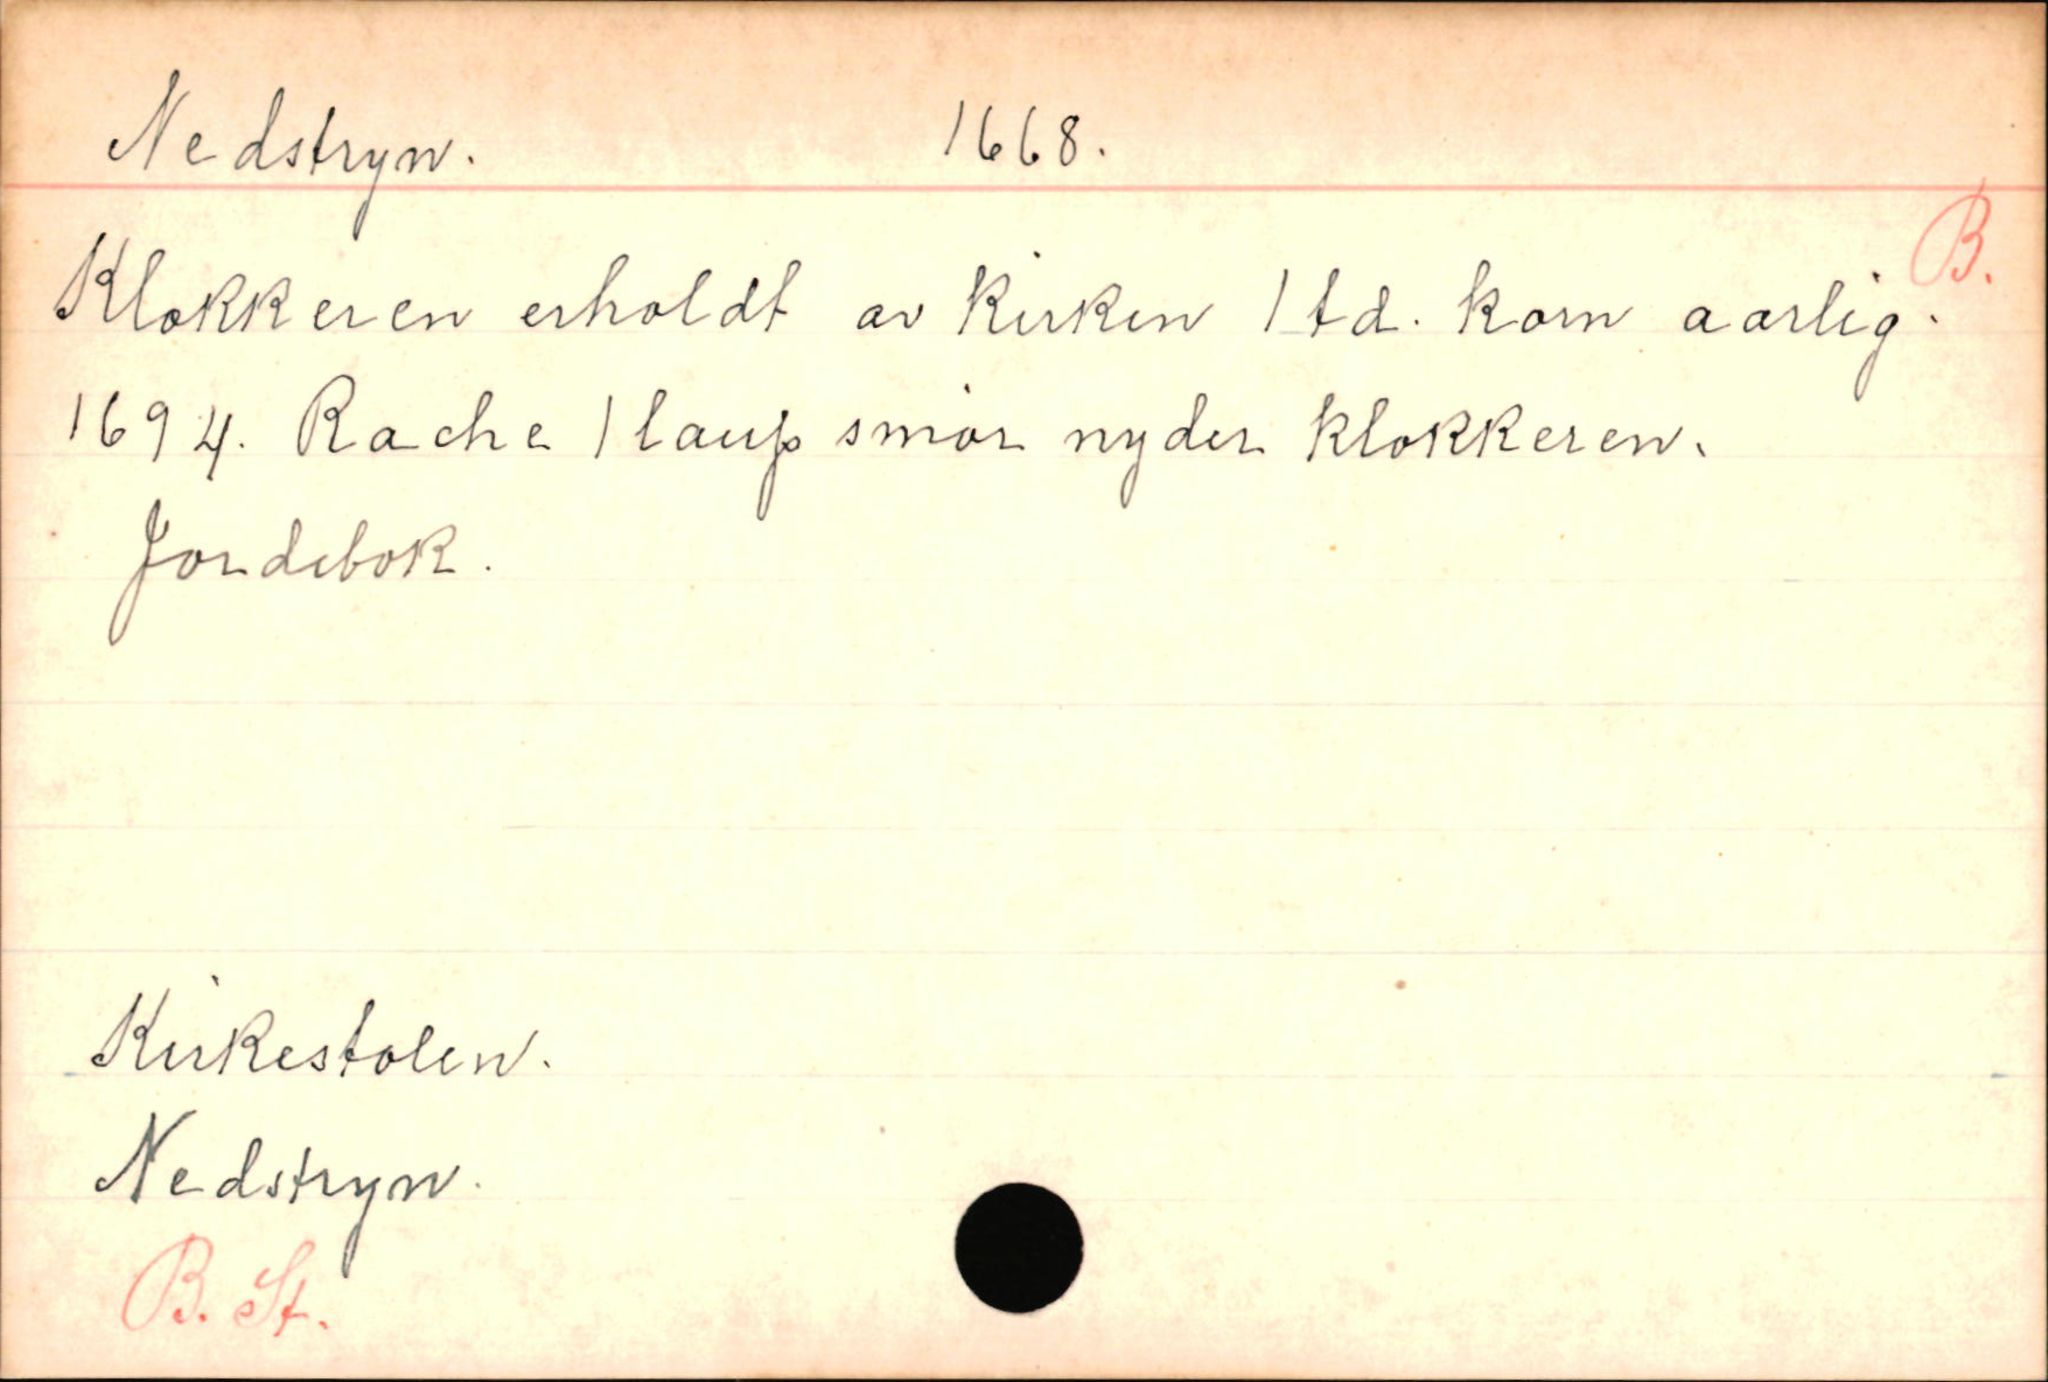 Nedstryn. 1668.
B.
Klokkeren erholdt av kirken 1 td. korn aarlig.
1694. Rache 1 laup smør nyder klokkeren.
Jordebok.
Kirkestolen.
Nedstryn.
B. St.